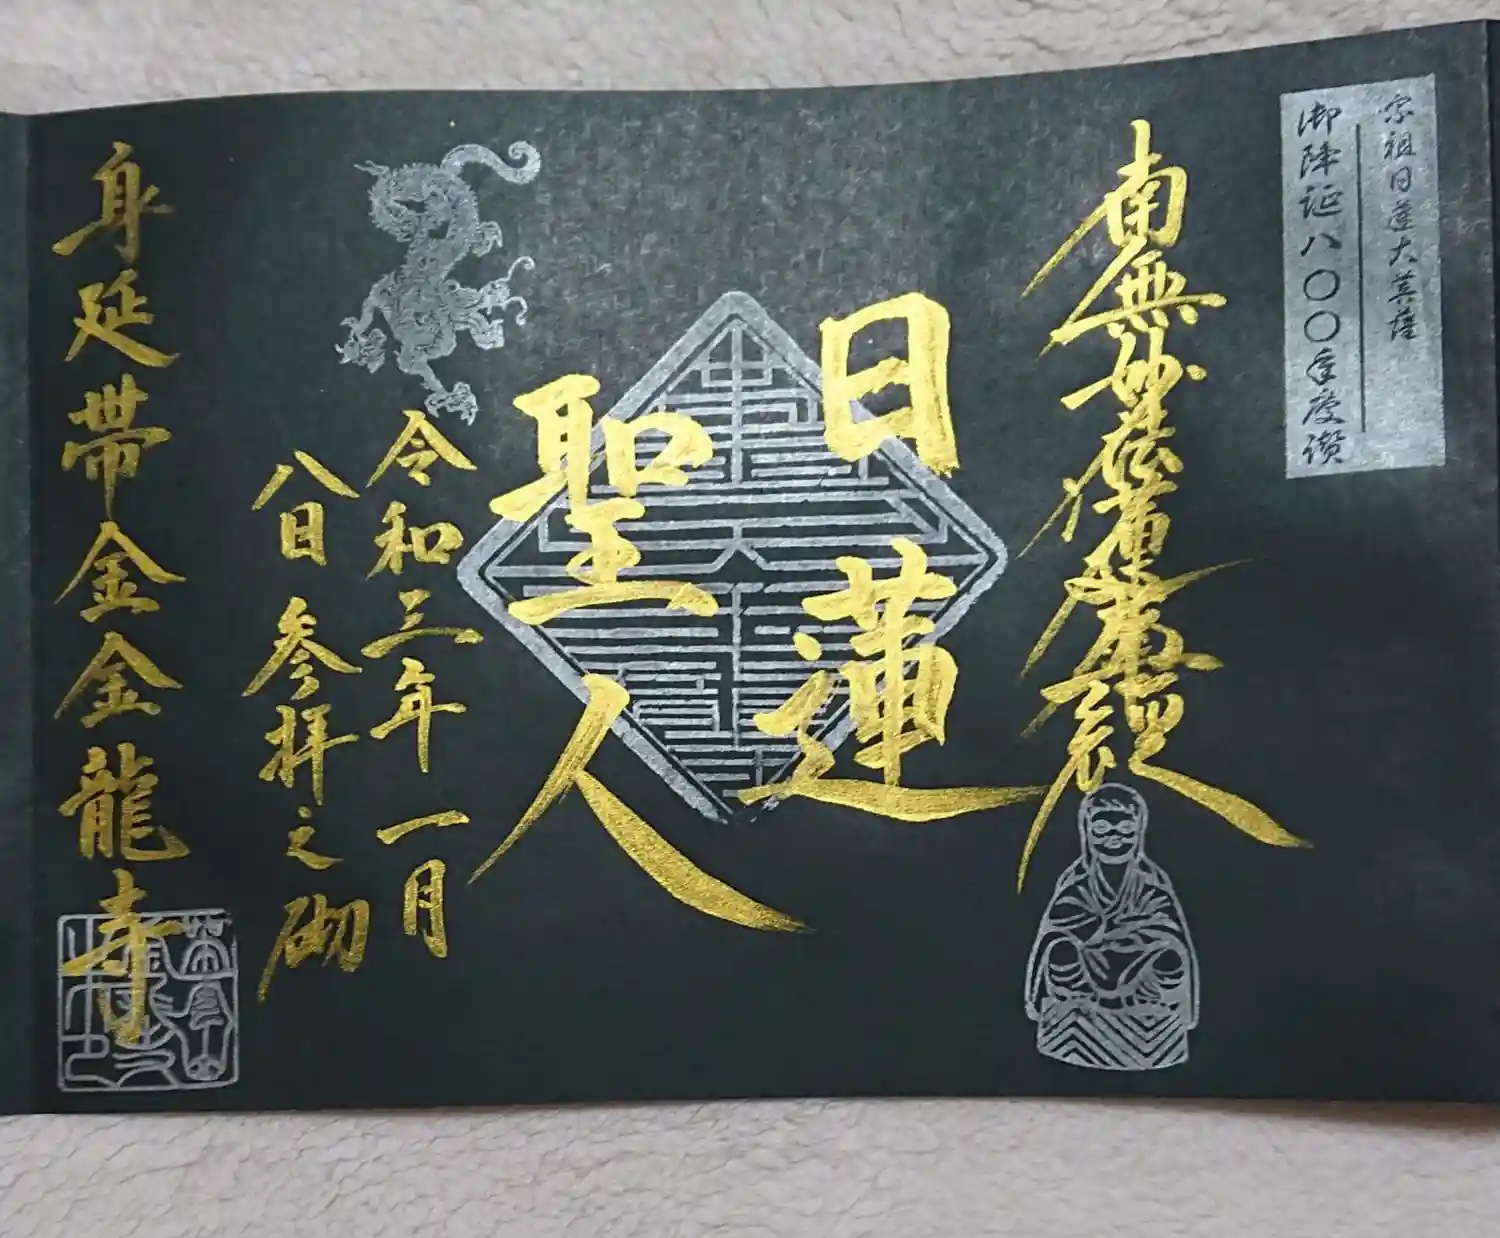 宗祖日蓮大菩薩
御降誕八〇〇年慶讃
南無妙法蓮華経
日蓮
聖人
令和三年一月
八日 参拝之砌
身延帯金金龍寺